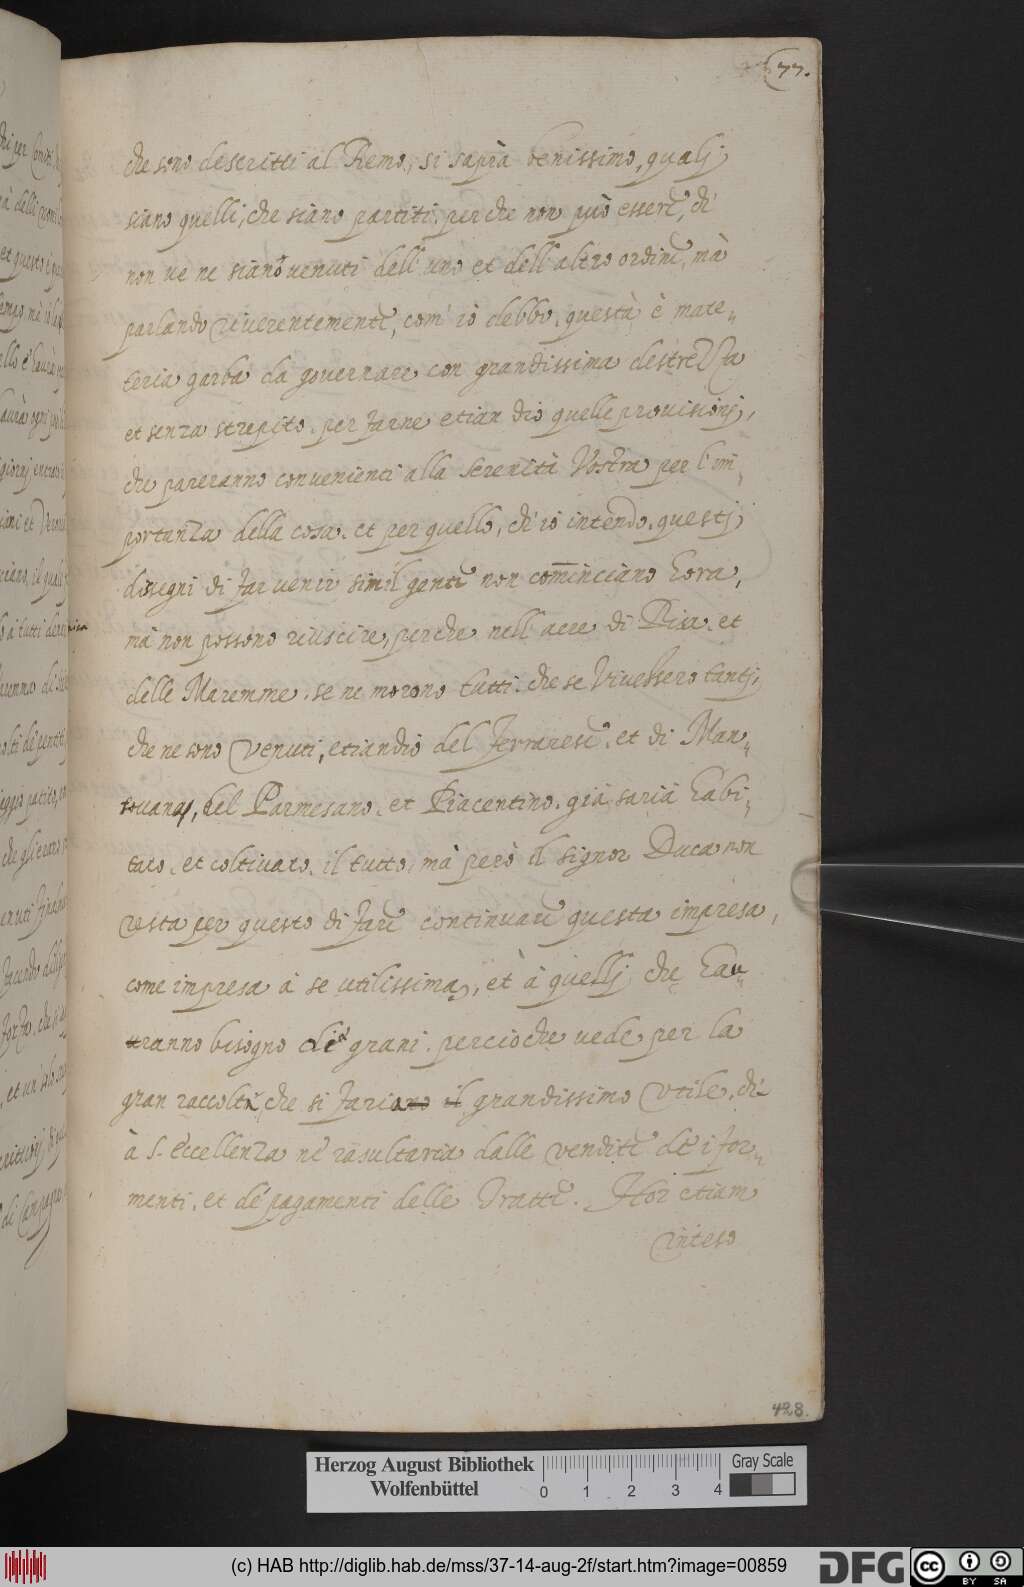 77.
che sono descritti al Remo, si saprà benissimo, qualj
siano quelli, che siano partiti, perche non può essere, ch'
non ve ne siano venuti dell'uno et dell'altro ordine, mà
parlando riverentemente, com' io debbo, questà è mate„
teria garba da governare con grandissima destrezza
et senza strepito, per farne etian dio quelle provisionj,
che pareranno convenienti alla Serenità Vostra per l'im„
portanza della cosa, et per quello, ch' io intendo, questj
disegni di far venir simil gente non comminciano hora,
mà non possono riuscire, perche nell'aere di Pisa, et
delle Maremme, se ne morono tutti, che se vivessero tantj,
che ne sono venuti, etiandio del Ferrarese, et di Man„
tovana, del Parmesano, et Piacentino, già saria habi„
tato, et coltivato, il tutto, mà però il signor Duca non
resta per questo di fare continuare questa impresa,
come impresa à se utilissima, et à quellj che hau„
uranno bisogno dei grani, percioche vede per la
gran raccolta, che si fariano il grandissimo utile, ch'
à S. Eccellenza nè rasultaria dalle vendite dè i for„
menti, et dè pagamenti delle Tratte. Hor etiam
inteso
428
Herzog August Bibliothek
Wolfenbüttel
0 1 2 3 4
Gray Scale
(c) HAB http://diglib.hab.de/mss/37-14-aug-2f/start.htm?image=00859
DFG
cc BY SA